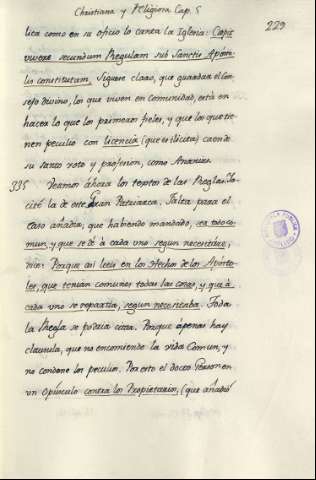 Christiana y Religiosa Cap. 5
229
lica como en su oficio lo canta la Iglesia: Cœpit
vivere secundum Regulam sub Sanctis Aposto-
lis constitutam. Siguese claro, que guardar el Con-
sejo divino, los que viven en comunidad, está en
hacer lo que los primeros fieles, y que los que tie-
nen peculio con licencia (que es ilícita) caen de
su santo voto y profesion, como Ananias.
335 Veamos ahora los textos de las Reglas. Ya
cité la de este Gran Patriarca. Falta para el
caso añadir, que habiendo mandado, sea todo co-
mun, y que se dé a cada uno segun necesitare,
dice: Porque asi leéis en los Hechos de los Aposto-
les, que tenian comunes todas las cosas, y que à
cada uno se repartia, segun necesitaba. Toda
la Regla se podria citar. Porque apenas hay
clausula, que no encomiende la vida Comun, y
no condene los peculios. Por esto el docto Gerson en
un Opusculo contra los Propietarios, (que añadió